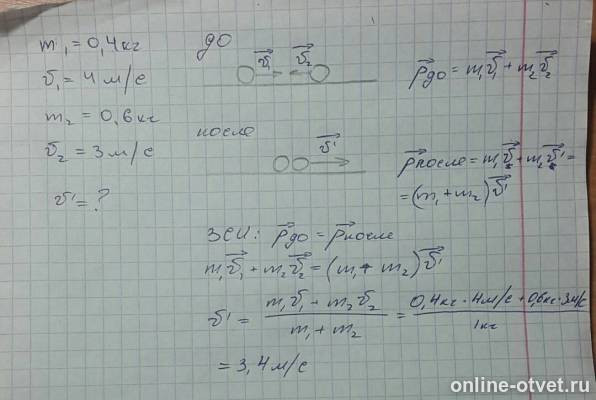 m₁ = 0,4 кг
v₁ = 4 м/с
m₂ = 0,6 кг
v₂ = 3 м/с
v' = ?
до
v⃗₁ v⃗₂
p⃗до = m₁v⃗₁ + m₂v⃗₂
после
v⃗'
p⃗после = m₁v⃗' + m₂v⃗' =
= (m₁ + m₂)v⃗'
ЗСИ: p⃗до = p⃗после
m₁v⃗₁ + m₂v⃗₂ = (m₁ + m₂)v⃗'
v' = (m₁v₁ + m₂v₂)/(m₁ + m₂) = (0,4кг · 4м/с + 0,6кг · 3м/с)/1кг
= 3,4 м/с
online-otvet.ru